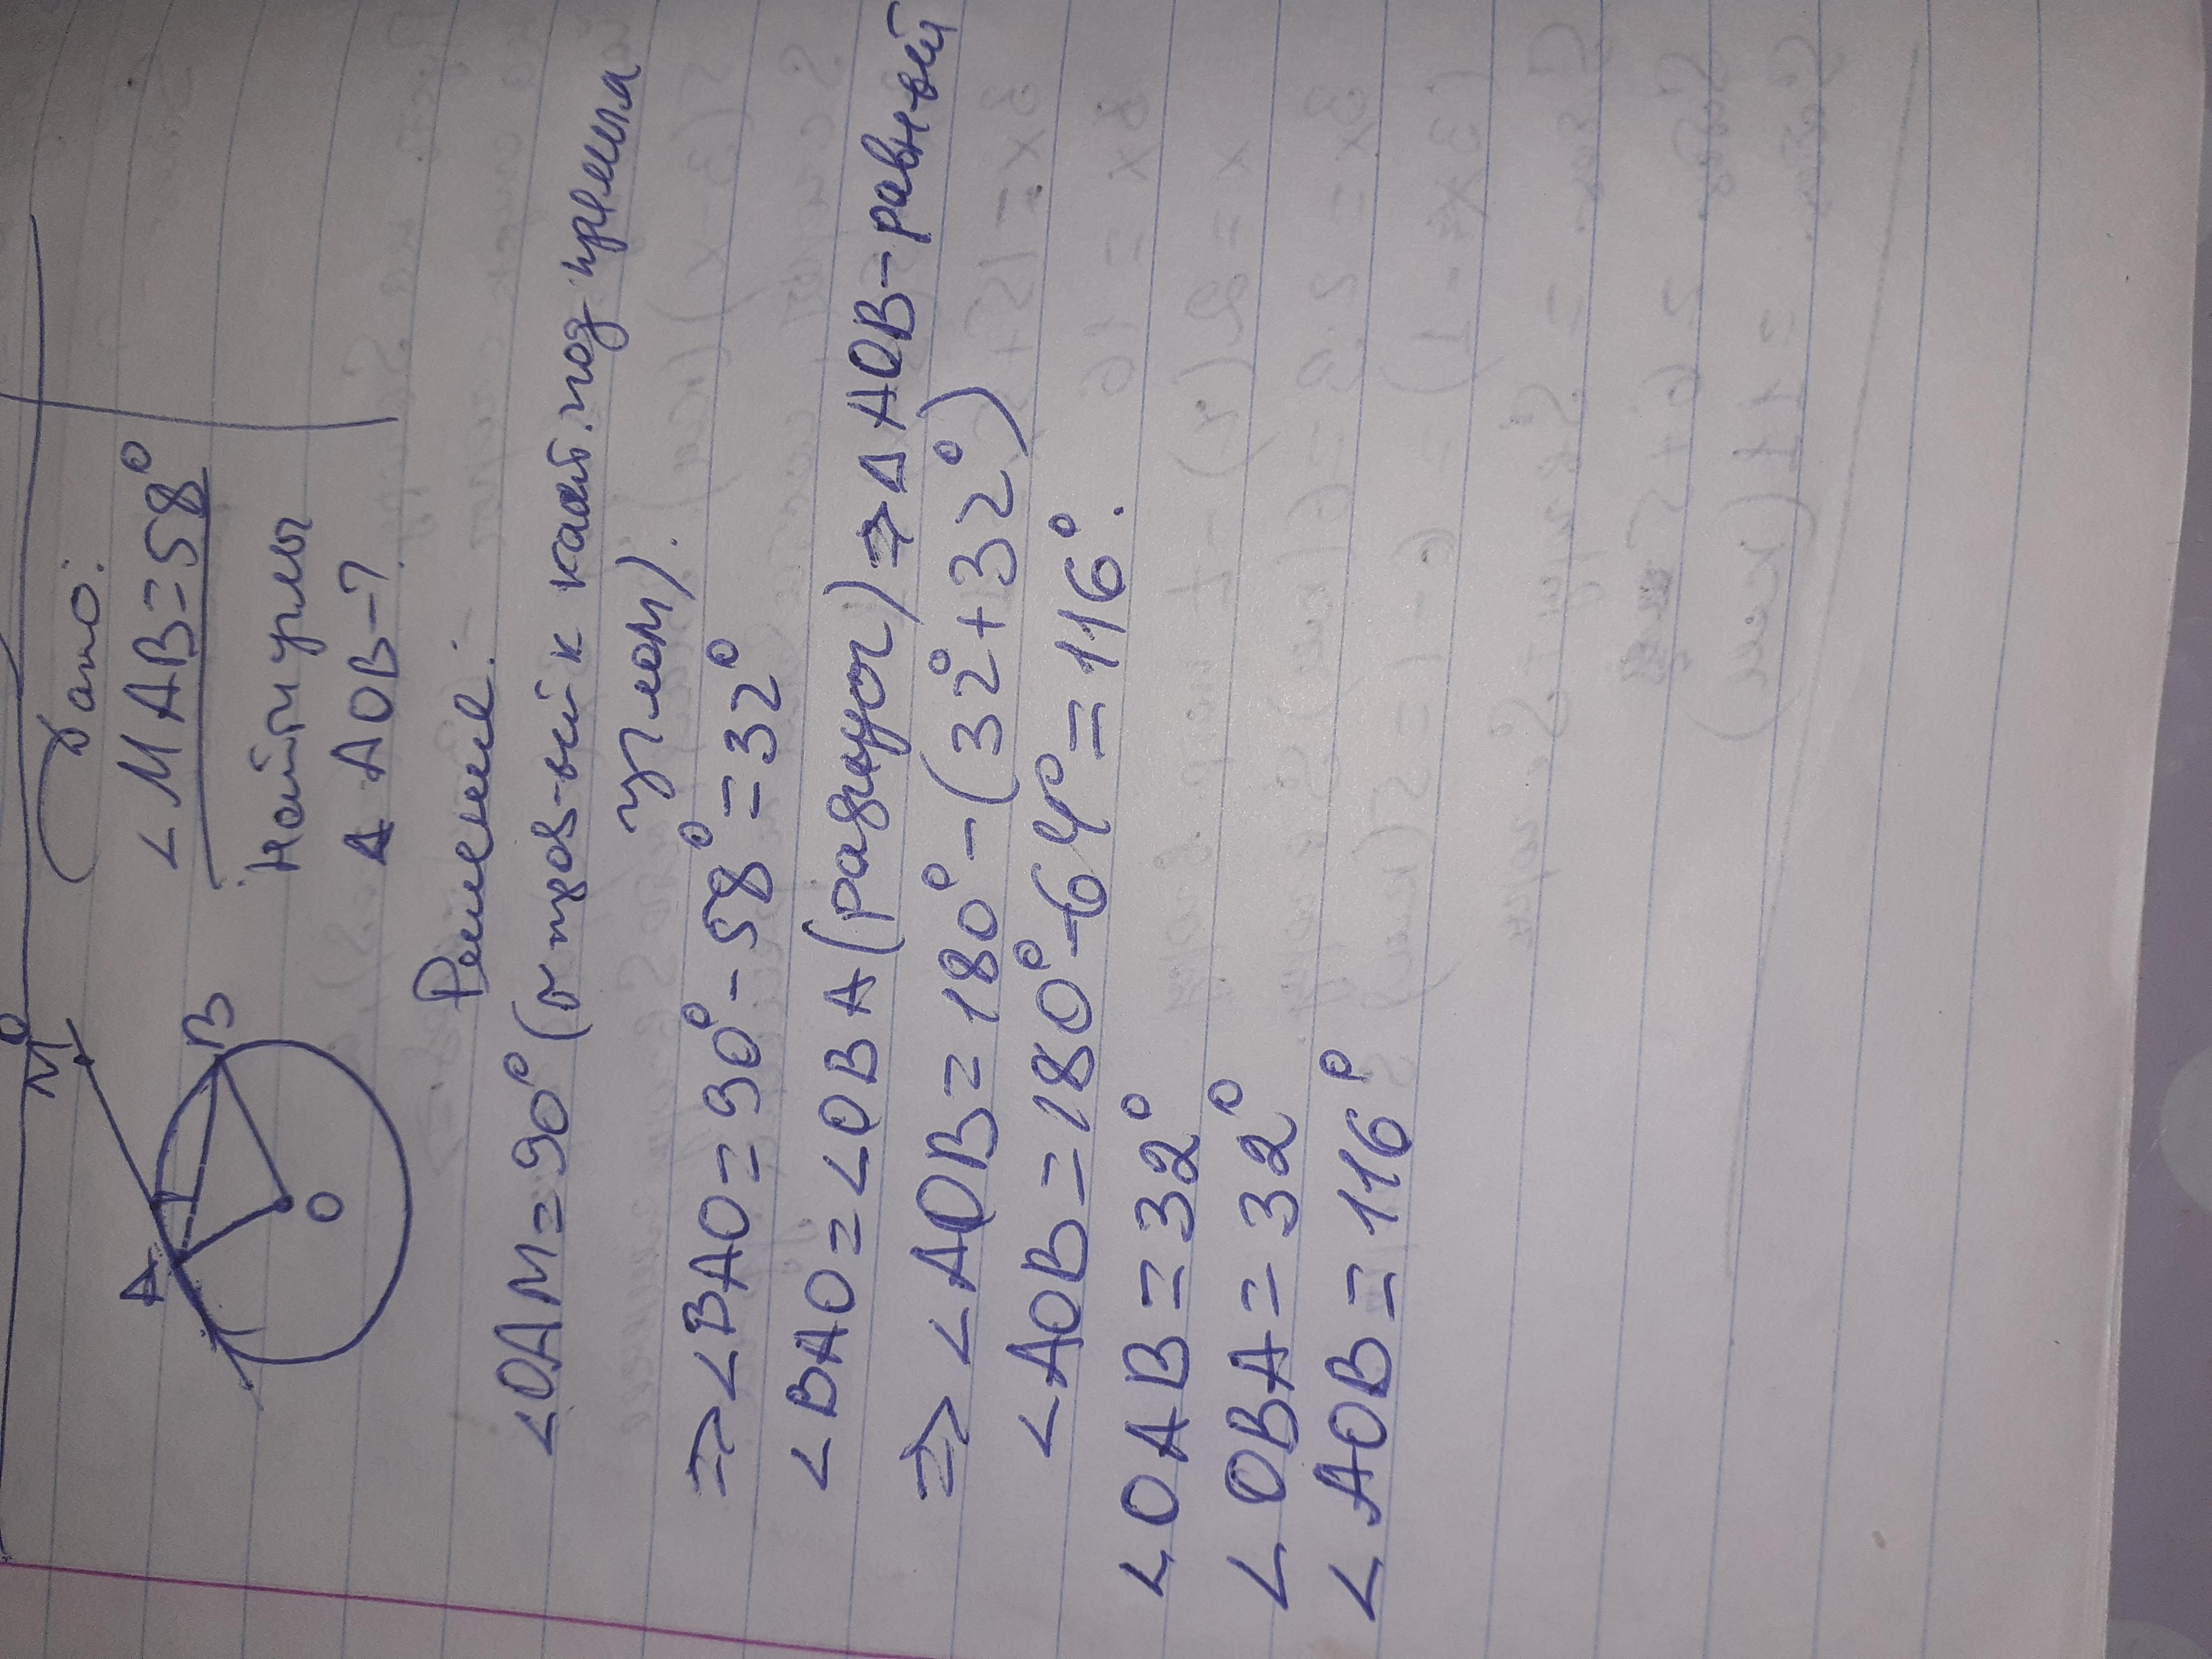 M
A
B
O
Дано:
<MAB=58°
Найти углы
Δ AOB-?
Решение:
<OAM=90° (
к касат. под прямым
углом).
=> <BAO=90°-58°=32°
<BAO=<OBA(радиусы)=> Δ AOB-равный
=> <AOB=180°-(32°+32°)
<AOB=180°-64°=116°.
<OAB=32°
<OBA=32°
<AOB=116°